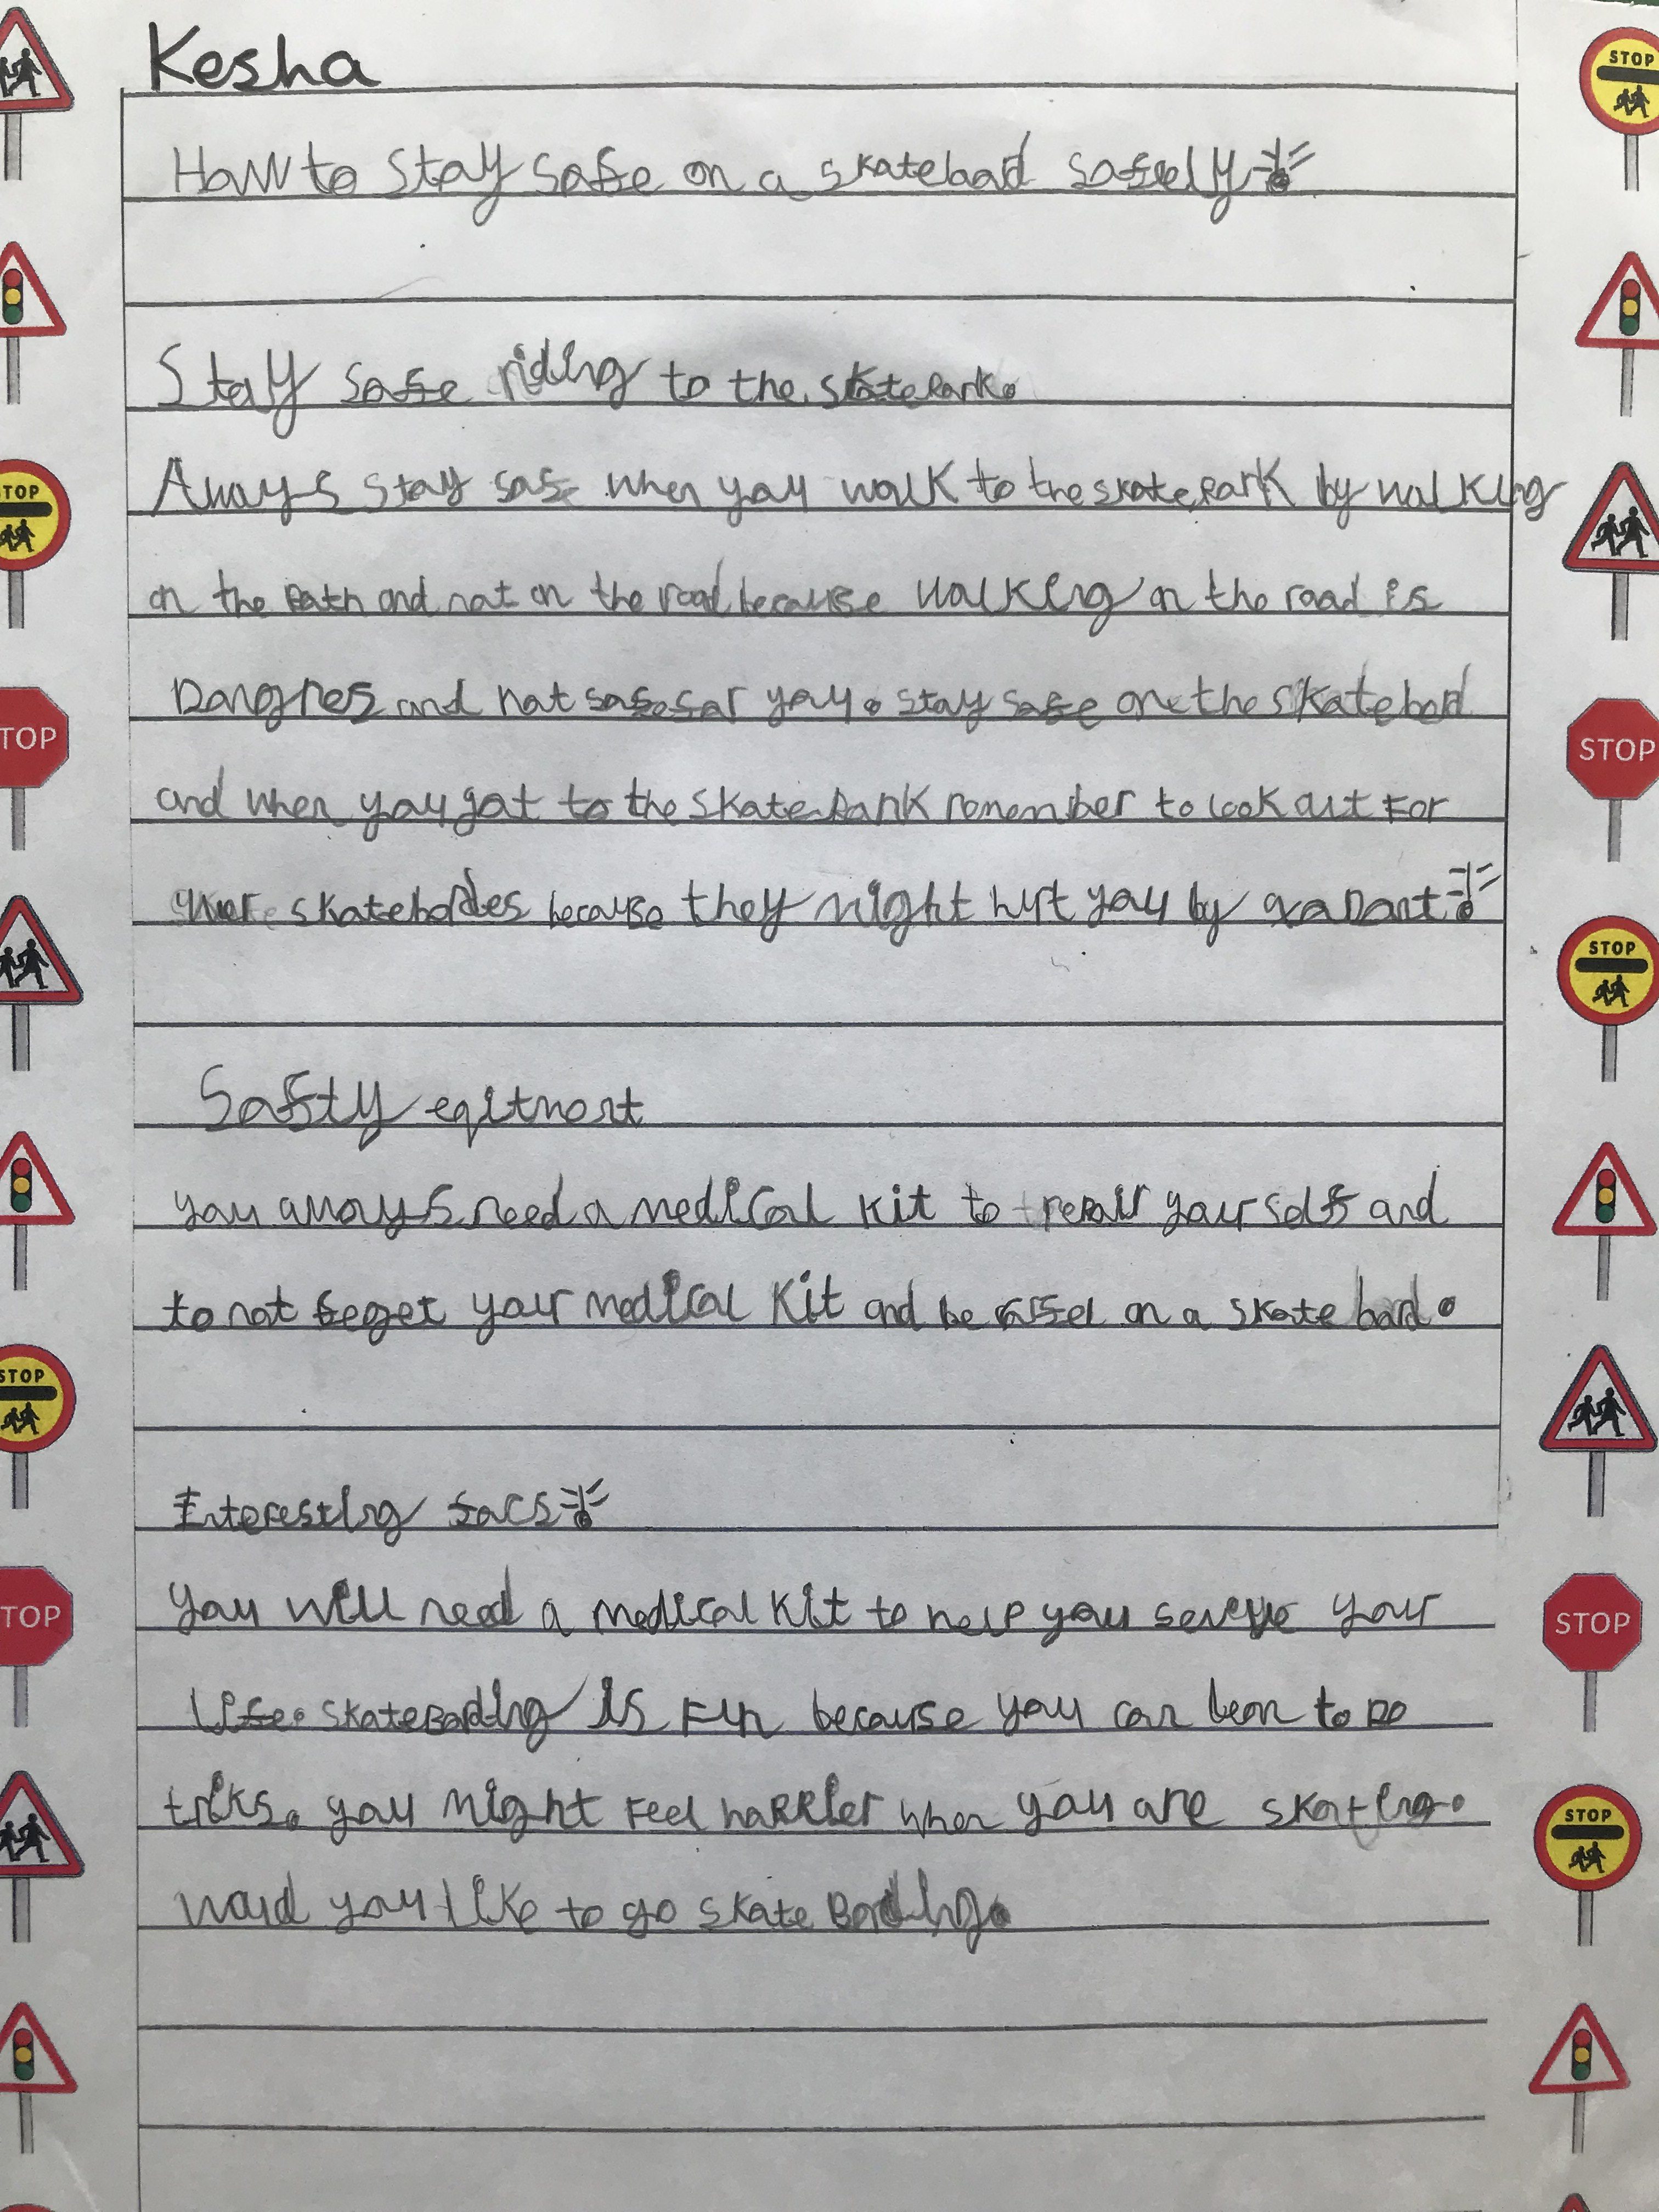 Kesha
How to stay safe on a skatebaod safely!
Stay safe riding to the skatepark.
Aways stay safe when you walk to the skatepark by walking
on the path and not on the road because walking on the road is
Dangres and not safe for you. stay safe on the skatebord
and when you got to the skatepark remember to look out For
skatebordes because they might hurt you by
Safty eqitment
you aways need a medical kit to repair yourself and
to not feget your medical kit and be on a skate bord.
Interesting facs!
you will need a medical kit to help you your
life. skateBording is Fun because you can lern to Do
triks. you might Feel happier when you are skating.
woud you like to go skate Bording.
STOP
STOP
STOP
STOP
STOP
STOP
STOP
STOP
STOP
STOP